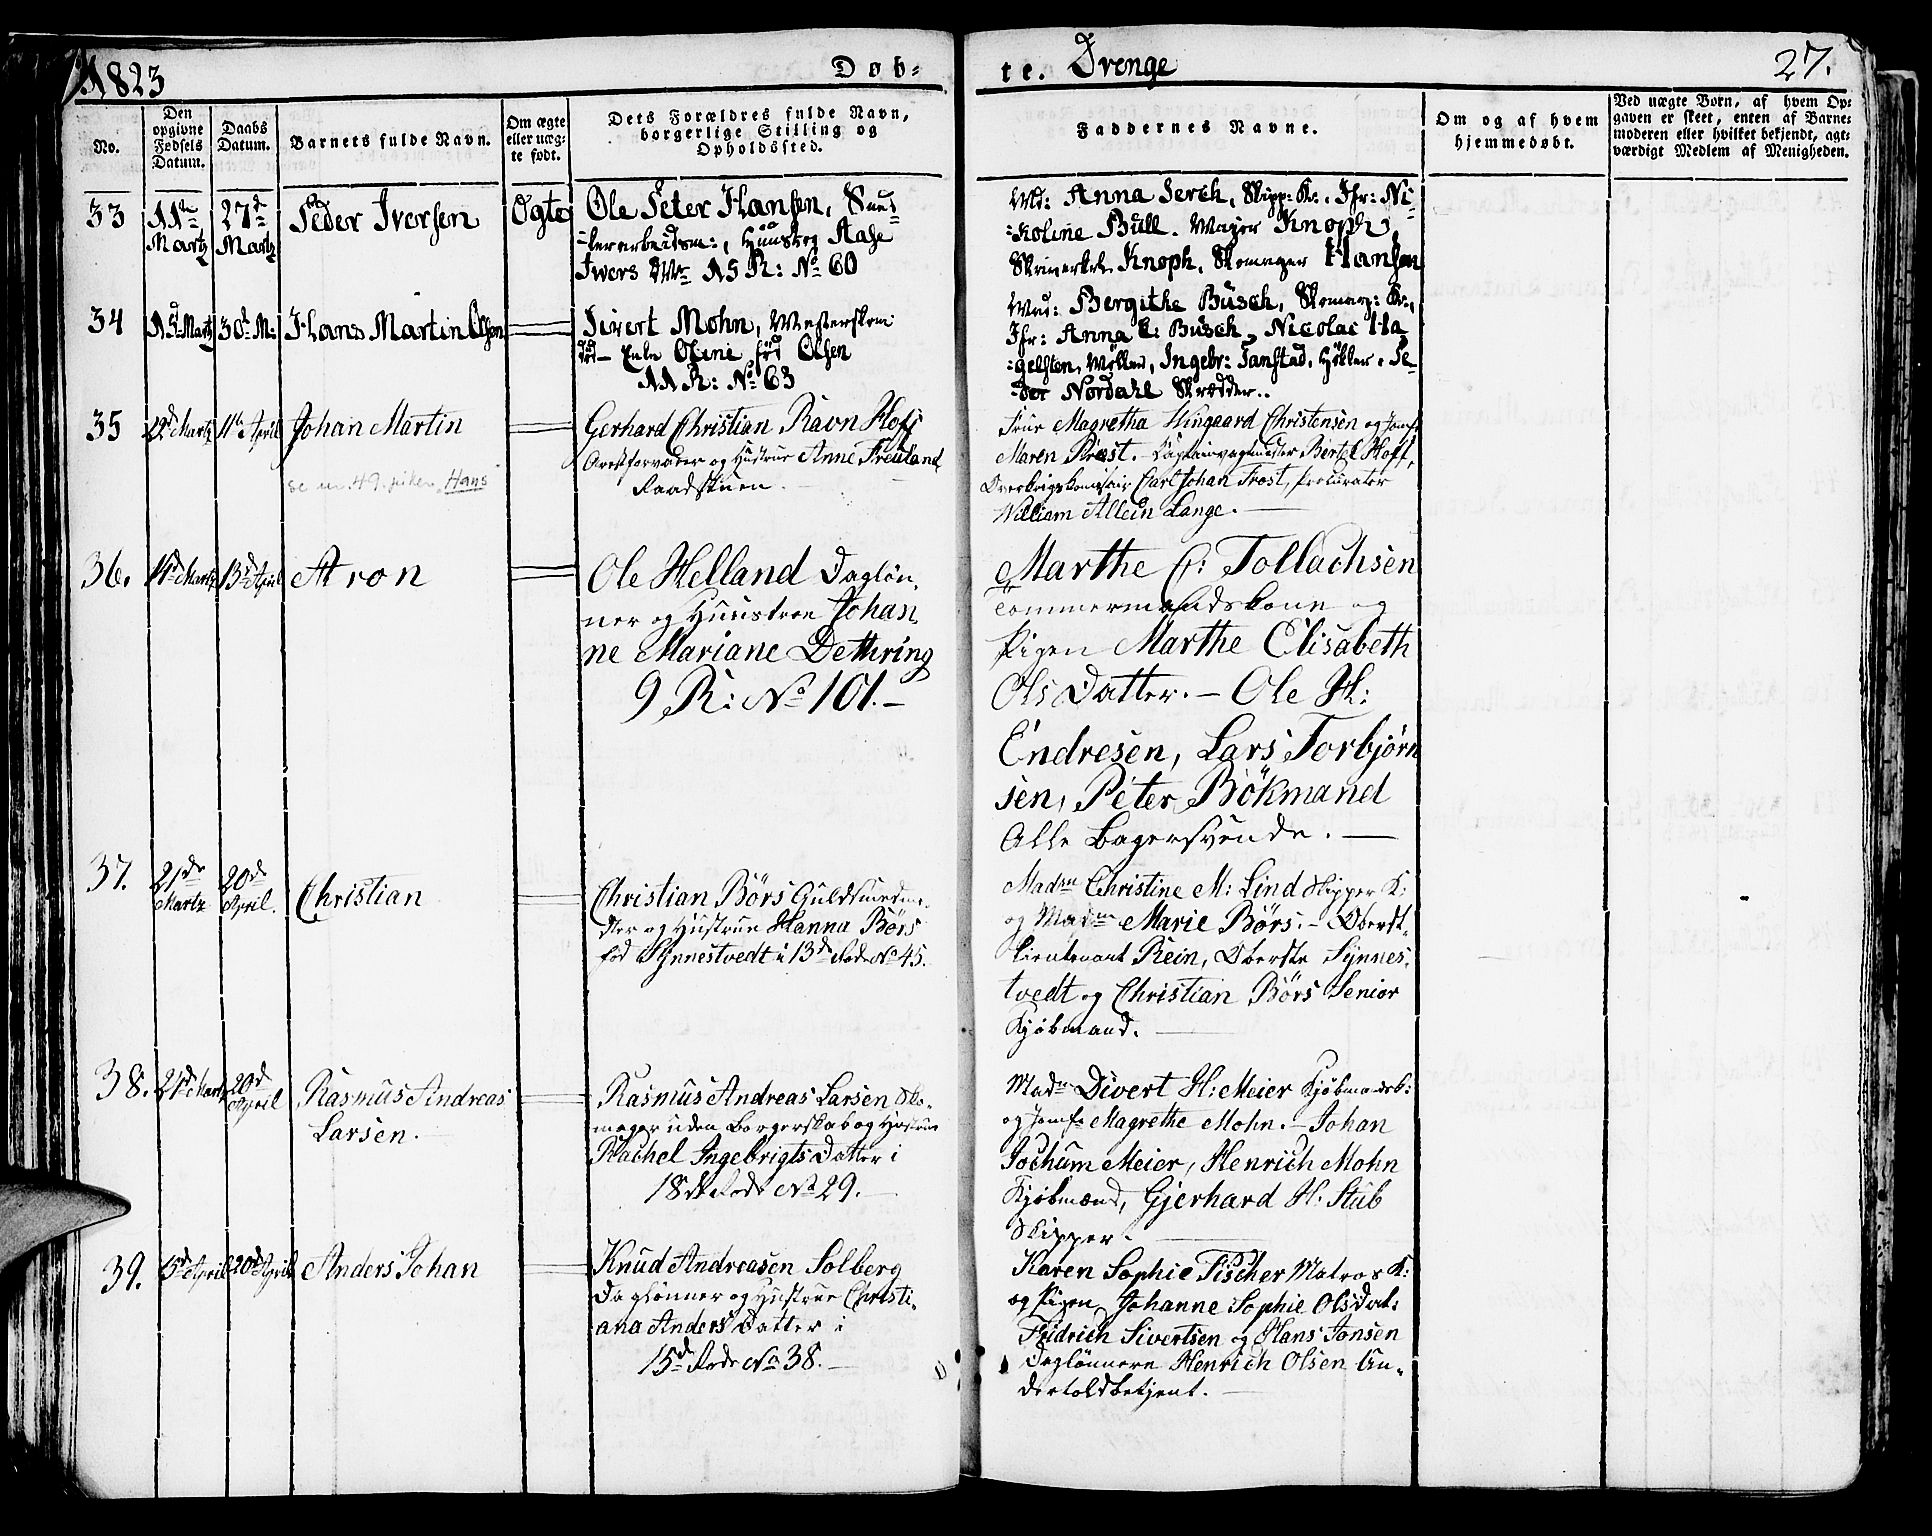 1823
Døb=
te. Drenge
27.
No.
Den
opgivne
Fødsels
Datum.
Daabs
Datum.
Barnets fulde Navn.
Om ægte
eller uæg-
te født.
Dets Forældres fulde Navn,
borgerlige Stilling og
Opholdssted.
Faddernes Navne.
Om og af hvem
hjemmedøbt.
Ved uægte Børn, af hvem Op-
gaven er skeet, enten af Barne-
moderen eller hvilket bekjendt, agt-
værdigt Medlem af Menigheden.
33
11te
Martz
27d
Martz
Peder Iversen
Ægte
Ole Peter Hansen,
Aase
Iwers Dtr 15 R: No 60
Md: Anna Jerch, Skipp: K:, Jfr: Ni-
=koline Büll. Major Knoph,
Knoph, Skomager Hansen
34
15d Martz
30d M:
Hans Martin Olsen
Sivert Mohn,
død - Enke Oline fød Olsen
11 R: No 63
Mad: Bergithe Büsch, Skomag: K:,
Jfr: Anna C: Büsch, Nicolai Ha
=gelsten, Møller, Ingebr: Janstad, Høkker, Pe-
=der Nordahl Skrædder..
35
19d Martz
11te April
Johan Martin
se nr. 49. piker, Hans
Gerhard Christian Ravn Hoff
Arrestforvarer og Hustrue Anne Freuland
Raadstuen.
Frue Magretha Wingaard Christensen og Jomf:
Maren Prost. Bertel Hoff,
Carl Johan Frost, Procurator
William Allein Lange.
36.
11te Martz
13d April
Aron
Ole Helland Dagløn-
ner og Huustroe Johan
ne Mariane Dethring
9 R: No 101.
Marthe C: Tollachsen
Tømmermandskone og
Pigen Marthe Elisabeth
Ols Datter. - Ole H:
Endresen, Lars Torbjørn
sen, Peter Bökmand
Alle Bagersvende.
37.
21de
Martz
20de
April.
Christian
Christian Börs Guldsmedme-
ster og Hustrue Hanna Börs
fød Synnestvedt i 13de Rode No 45.
Madm Christine M: Lind Skipper K:
og Madm Marie Börs. - Oberst-
lieutenant Rein, Oberste Synnes-
tvedt og Christian Börs Senior
Kjøbmand.
38.
21d Martz
20d
April
Rasmus Andreas
Larsen.
Rasmus Andreas Larsen Sko-
mager uden Borgerskab og Hustrue
Rachel Ingebrigts Datter i
18de Rode No 29.
Madm Divert H: Meier Kjøbmandsk:
og Jomfr Magrethe Mohn. - Johan
Jochum Meier, Henrich Mohn
Kjøbmænd, Gjerhard H: Stub
Skipper.
39.
5d April
20d April
Anders Johan
Knud Andreasen Solberg
Daglønner og Hustrue Christi-
ana Anders Datter i
15d Rode No 38.
Karen Sophie Fischer Matros K:
og Pigen Johanne Sophie Olsdat:
Fridrich Sivertsen og Hans Jonsen
Daglønnere Henrich Olsen Un-
dertoldbetjent.